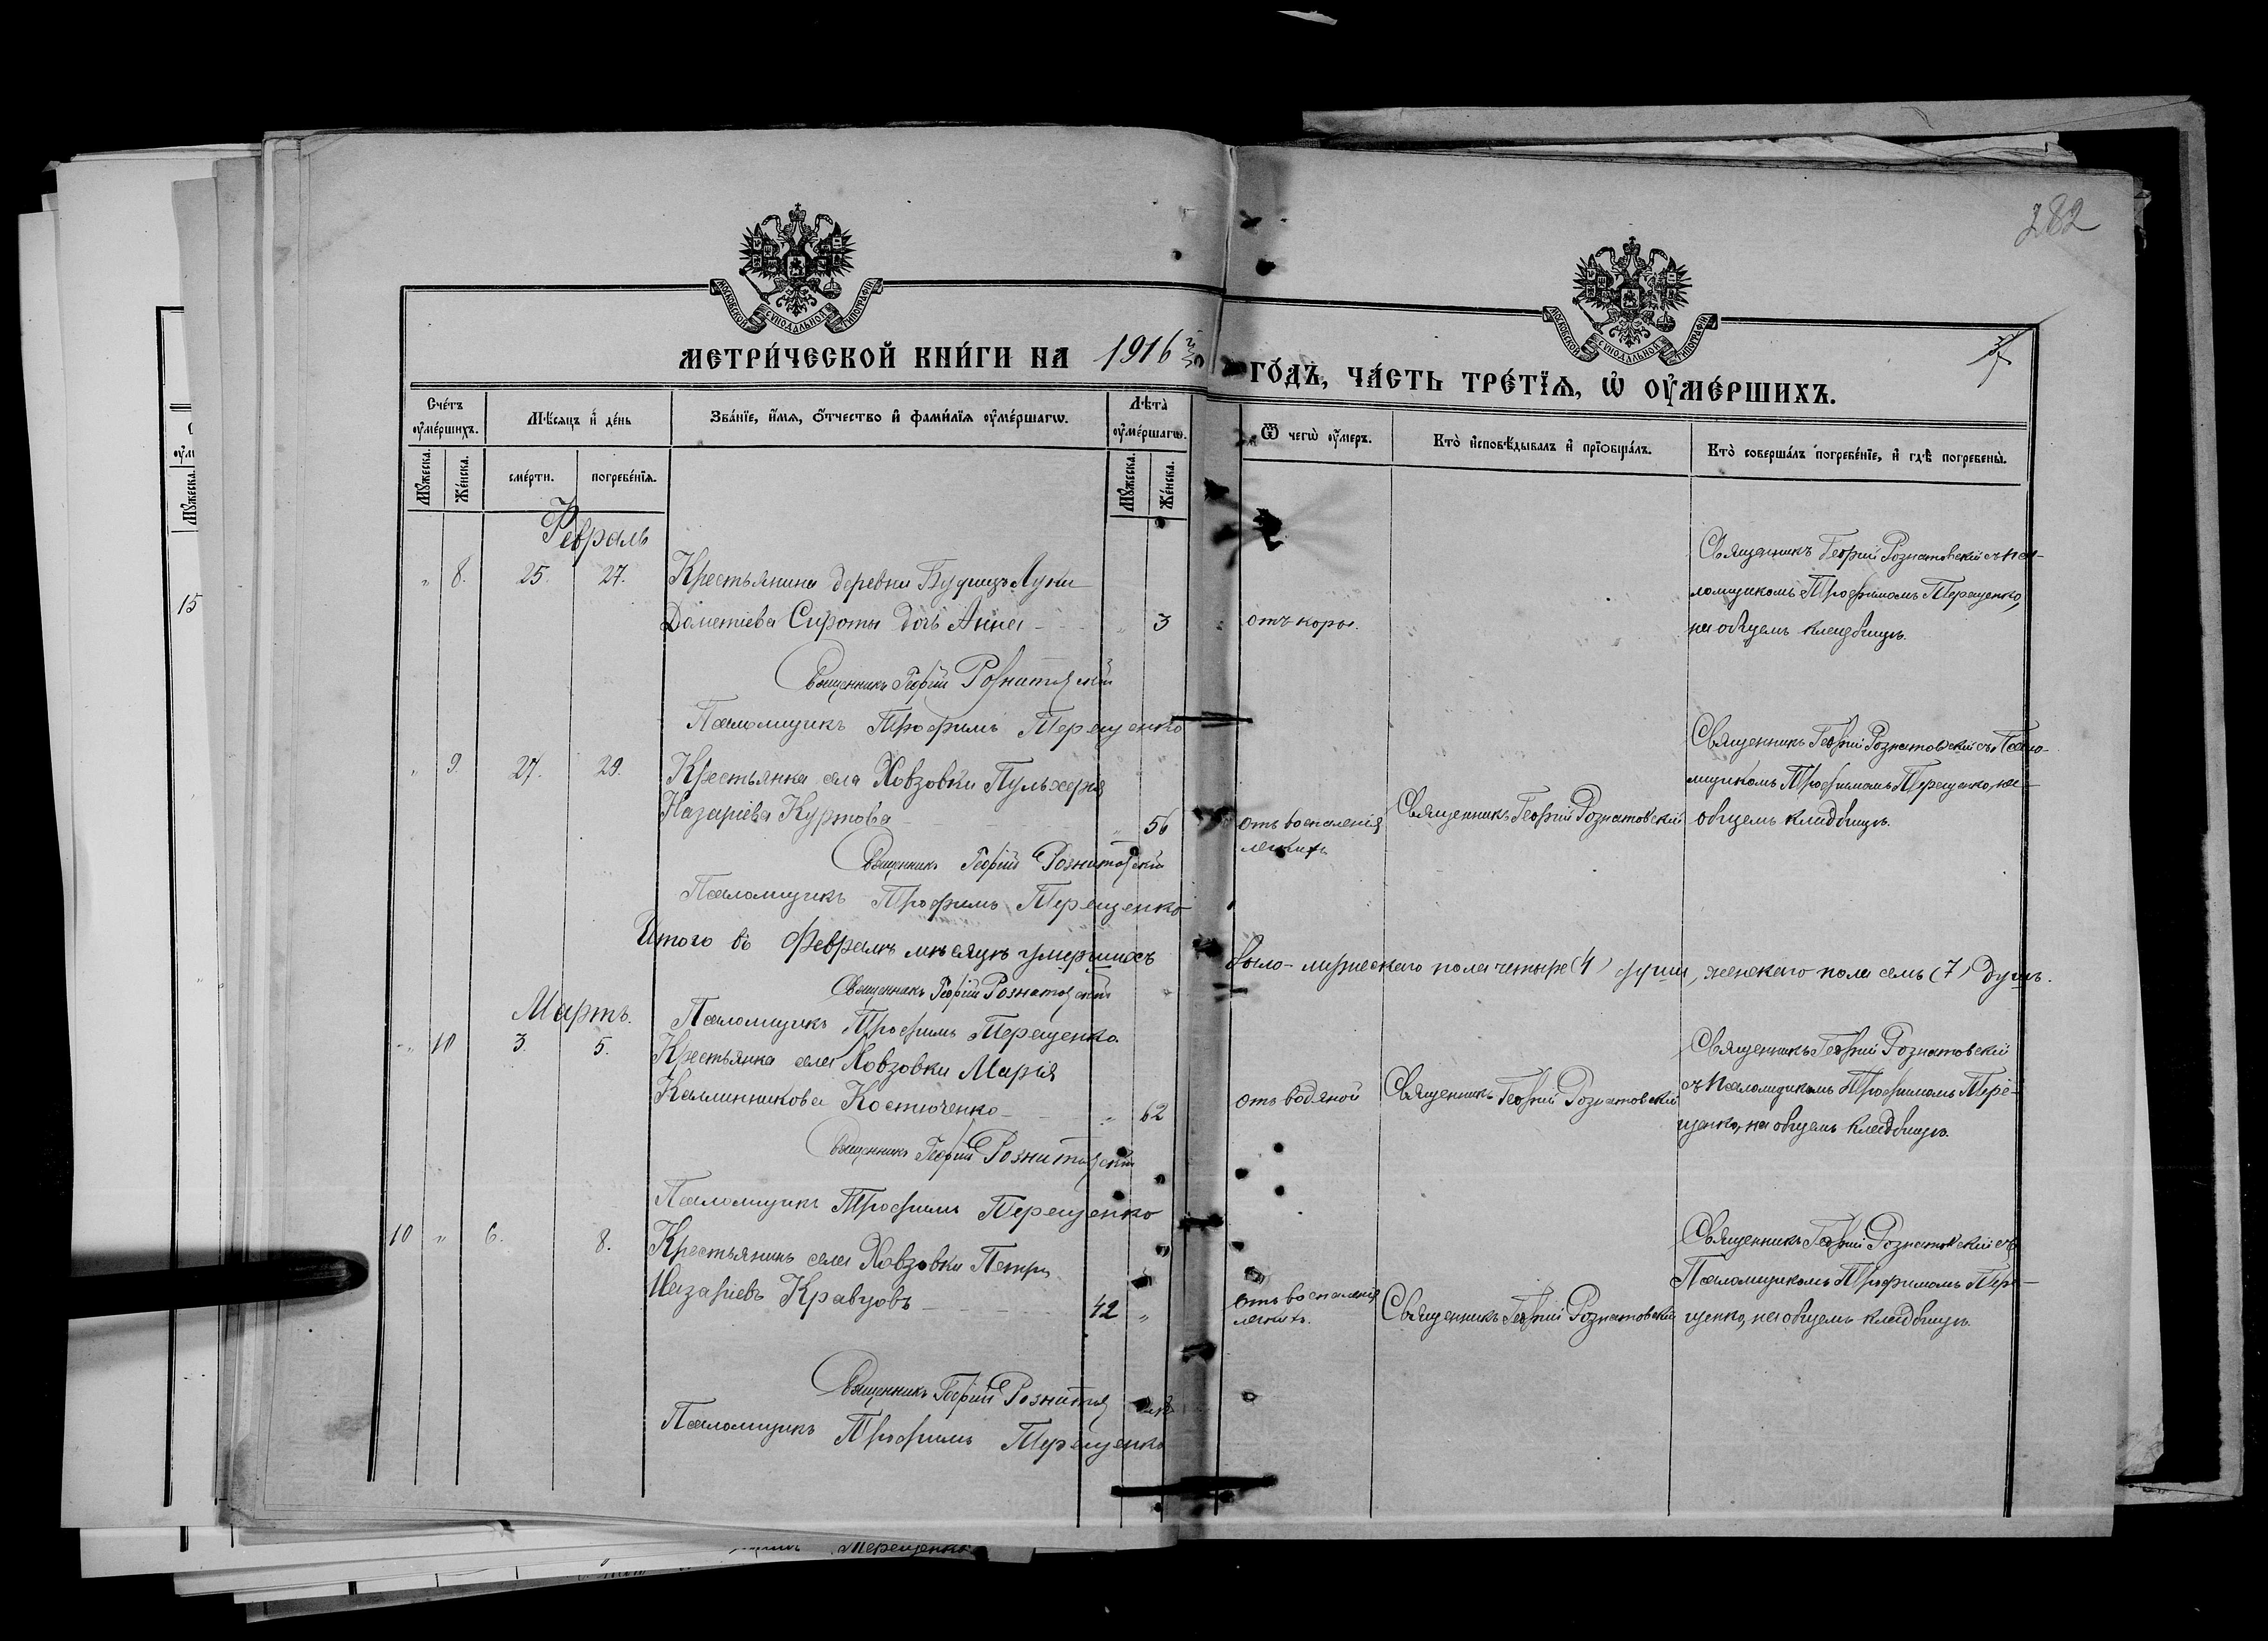 282
МОСКОВСКОЙ СѴНОДАЛЬНОЙ ТИПОГРАФІИ
МОСКОВСКОЙ СѴНОДАЛЬНОЙ ТИПОГРАФІИ
МЕТРИ́ЧЕСКОЙ КНИ́ГИ НА 1916 й
ГО́ДЪ, ЧА́СТЬ ТРЕ́ТІѦ, Ѡ ОУМЕ́РШИХЪ.
Сче́тъ оуме́ршихъ.
Мѣ́сяцъ и де́нь
Зва́ніе, и́мя, о́тчество и фами́лія оуме́ршагѡ.
Лѣта̀ оуме́ршагѡ.
Ѿ чегѡ̀ оу́меръ.
Кто̀ исповѣ́дывалъ и пріобща́лъ.
Кто̀ соверша́лъ погребе́ніе, и гдѣ̀ погребены̀.
Мꙋ́жеска.
Же́нска.
сме́рти.
погребе́нія.
Мꙋ́жеска.
Же́нска.
Февраль
„ 8. 25. 27. Крестьянина деревни Будищъ Луки
Дометіева Сироты дочь Анна - „ 3 отъ кори.
Священникъ Георгій Рознатовскій съ Пса-
ломщикомъ Трофимомъ Терещенко,
на общемъ кладбищѣ.
Священникъ Георгій Рознатовскій
Псаломщикъ Трофимъ Терещенко
„ 9. 27. 29. Крестьянка села Ховзовки Пульхерія
Назаріева Куртова „ 56 отъ воспаленія
легкихъ
Священникъ Георгій Рознатовскій
Священникъ Георгій Рознатовскій съ Псало-
мщикомъ Трофимомъ Терещенко, на
общемъ кладбищѣ.
Священникъ Георгій Рознатовскій
Псаломщикъ Трофимъ Терещенко
Итого въ Февралѣ мѣсяцѣ умершихъ было - мужескаго пола четыре (4) души, женскаго пола семь (7) душъ.
Священникъ Георгій Рознатовскій
Псаломщикъ Трофимъ Терещенко.
Мартъ.
„ 10 3. 5. Крестьянка села Ховзовки Марія
Каллинникова Костюченко - „ 62 отъ водяной
Священникъ Георгій Рознатовскій
Священникъ Георгій Рознатовскій
съ Псаломщикомъ Трофимомъ Тере-
щенко, на общемъ кладбищѣ.
Священникъ Георгій Рознатовскій
Псаломщикъ Трофимъ Терещенко
10 „ 6. 8. Крестьянинъ села Ховзовки Петръ
Назаріевъ Кравцовъ - 42 „ отъ воспаленія
легкихъ.
Священникъ Георгій Рознатовскій
Священникъ Георгій Рознатовскій съ
Псаломщикомъ Трофимомъ Тере-
щенко, на общемъ кладбищѣ.
Священникъ Георгій Рознатовскій
Псаломщикъ Трофимъ Терещенко
Мꙋжеска.
15
Терещенко